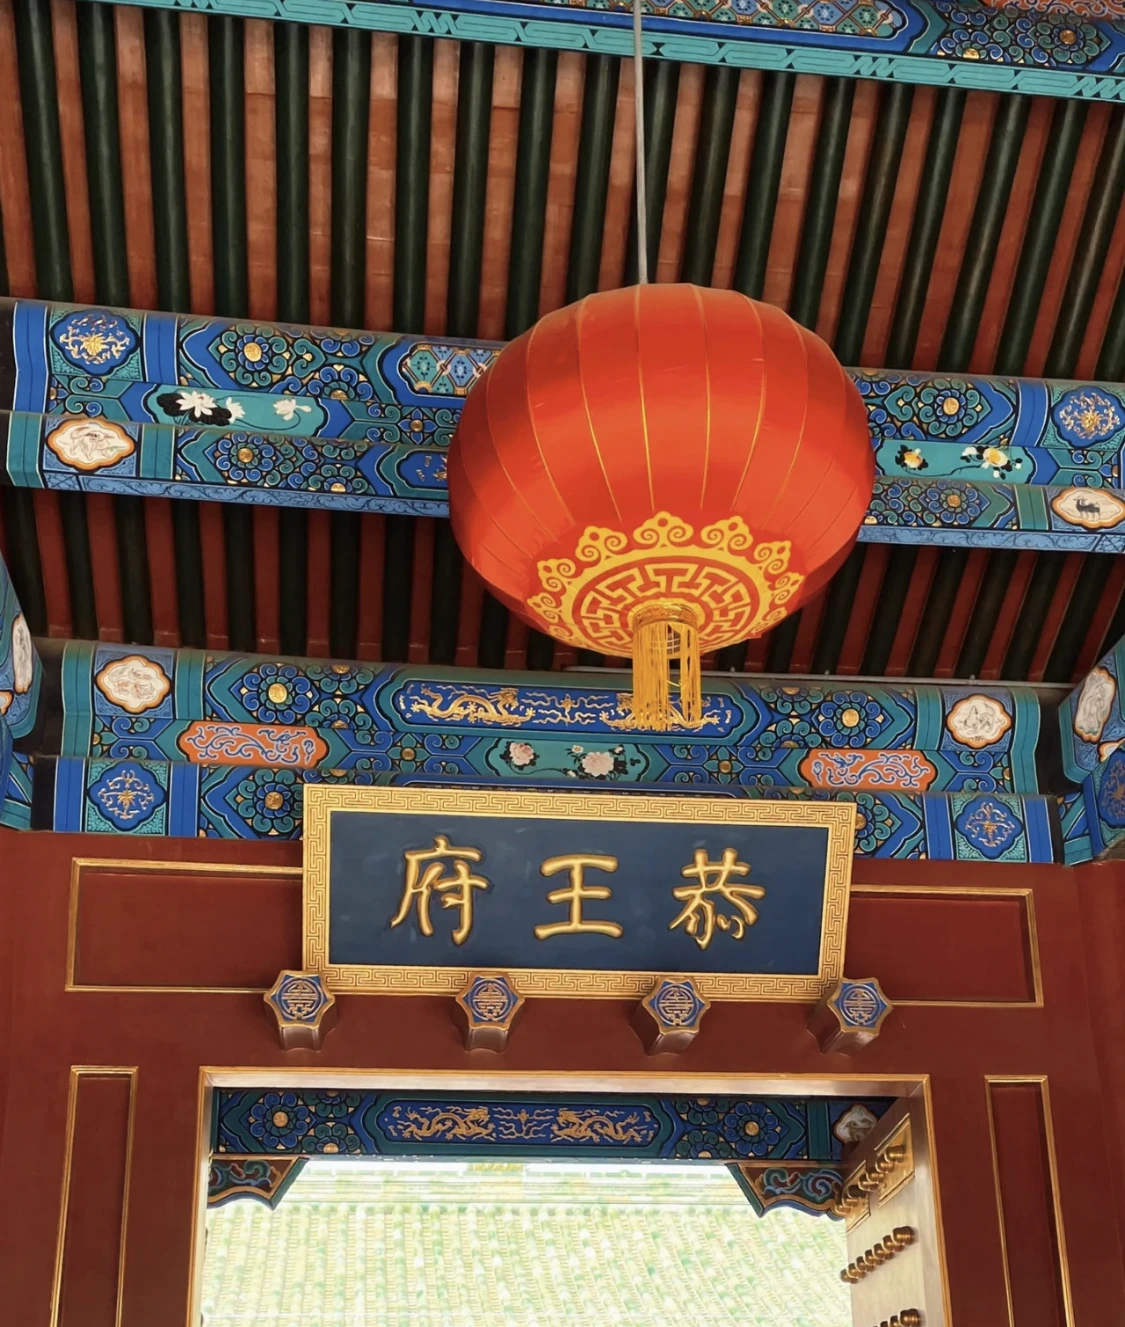 恭王府